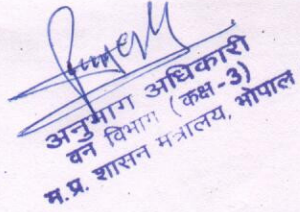 अनुभाग अधिकारी
वन विभाग (कक्ष-3)
म.प्र. शासन मंत्रालय, भोपाल